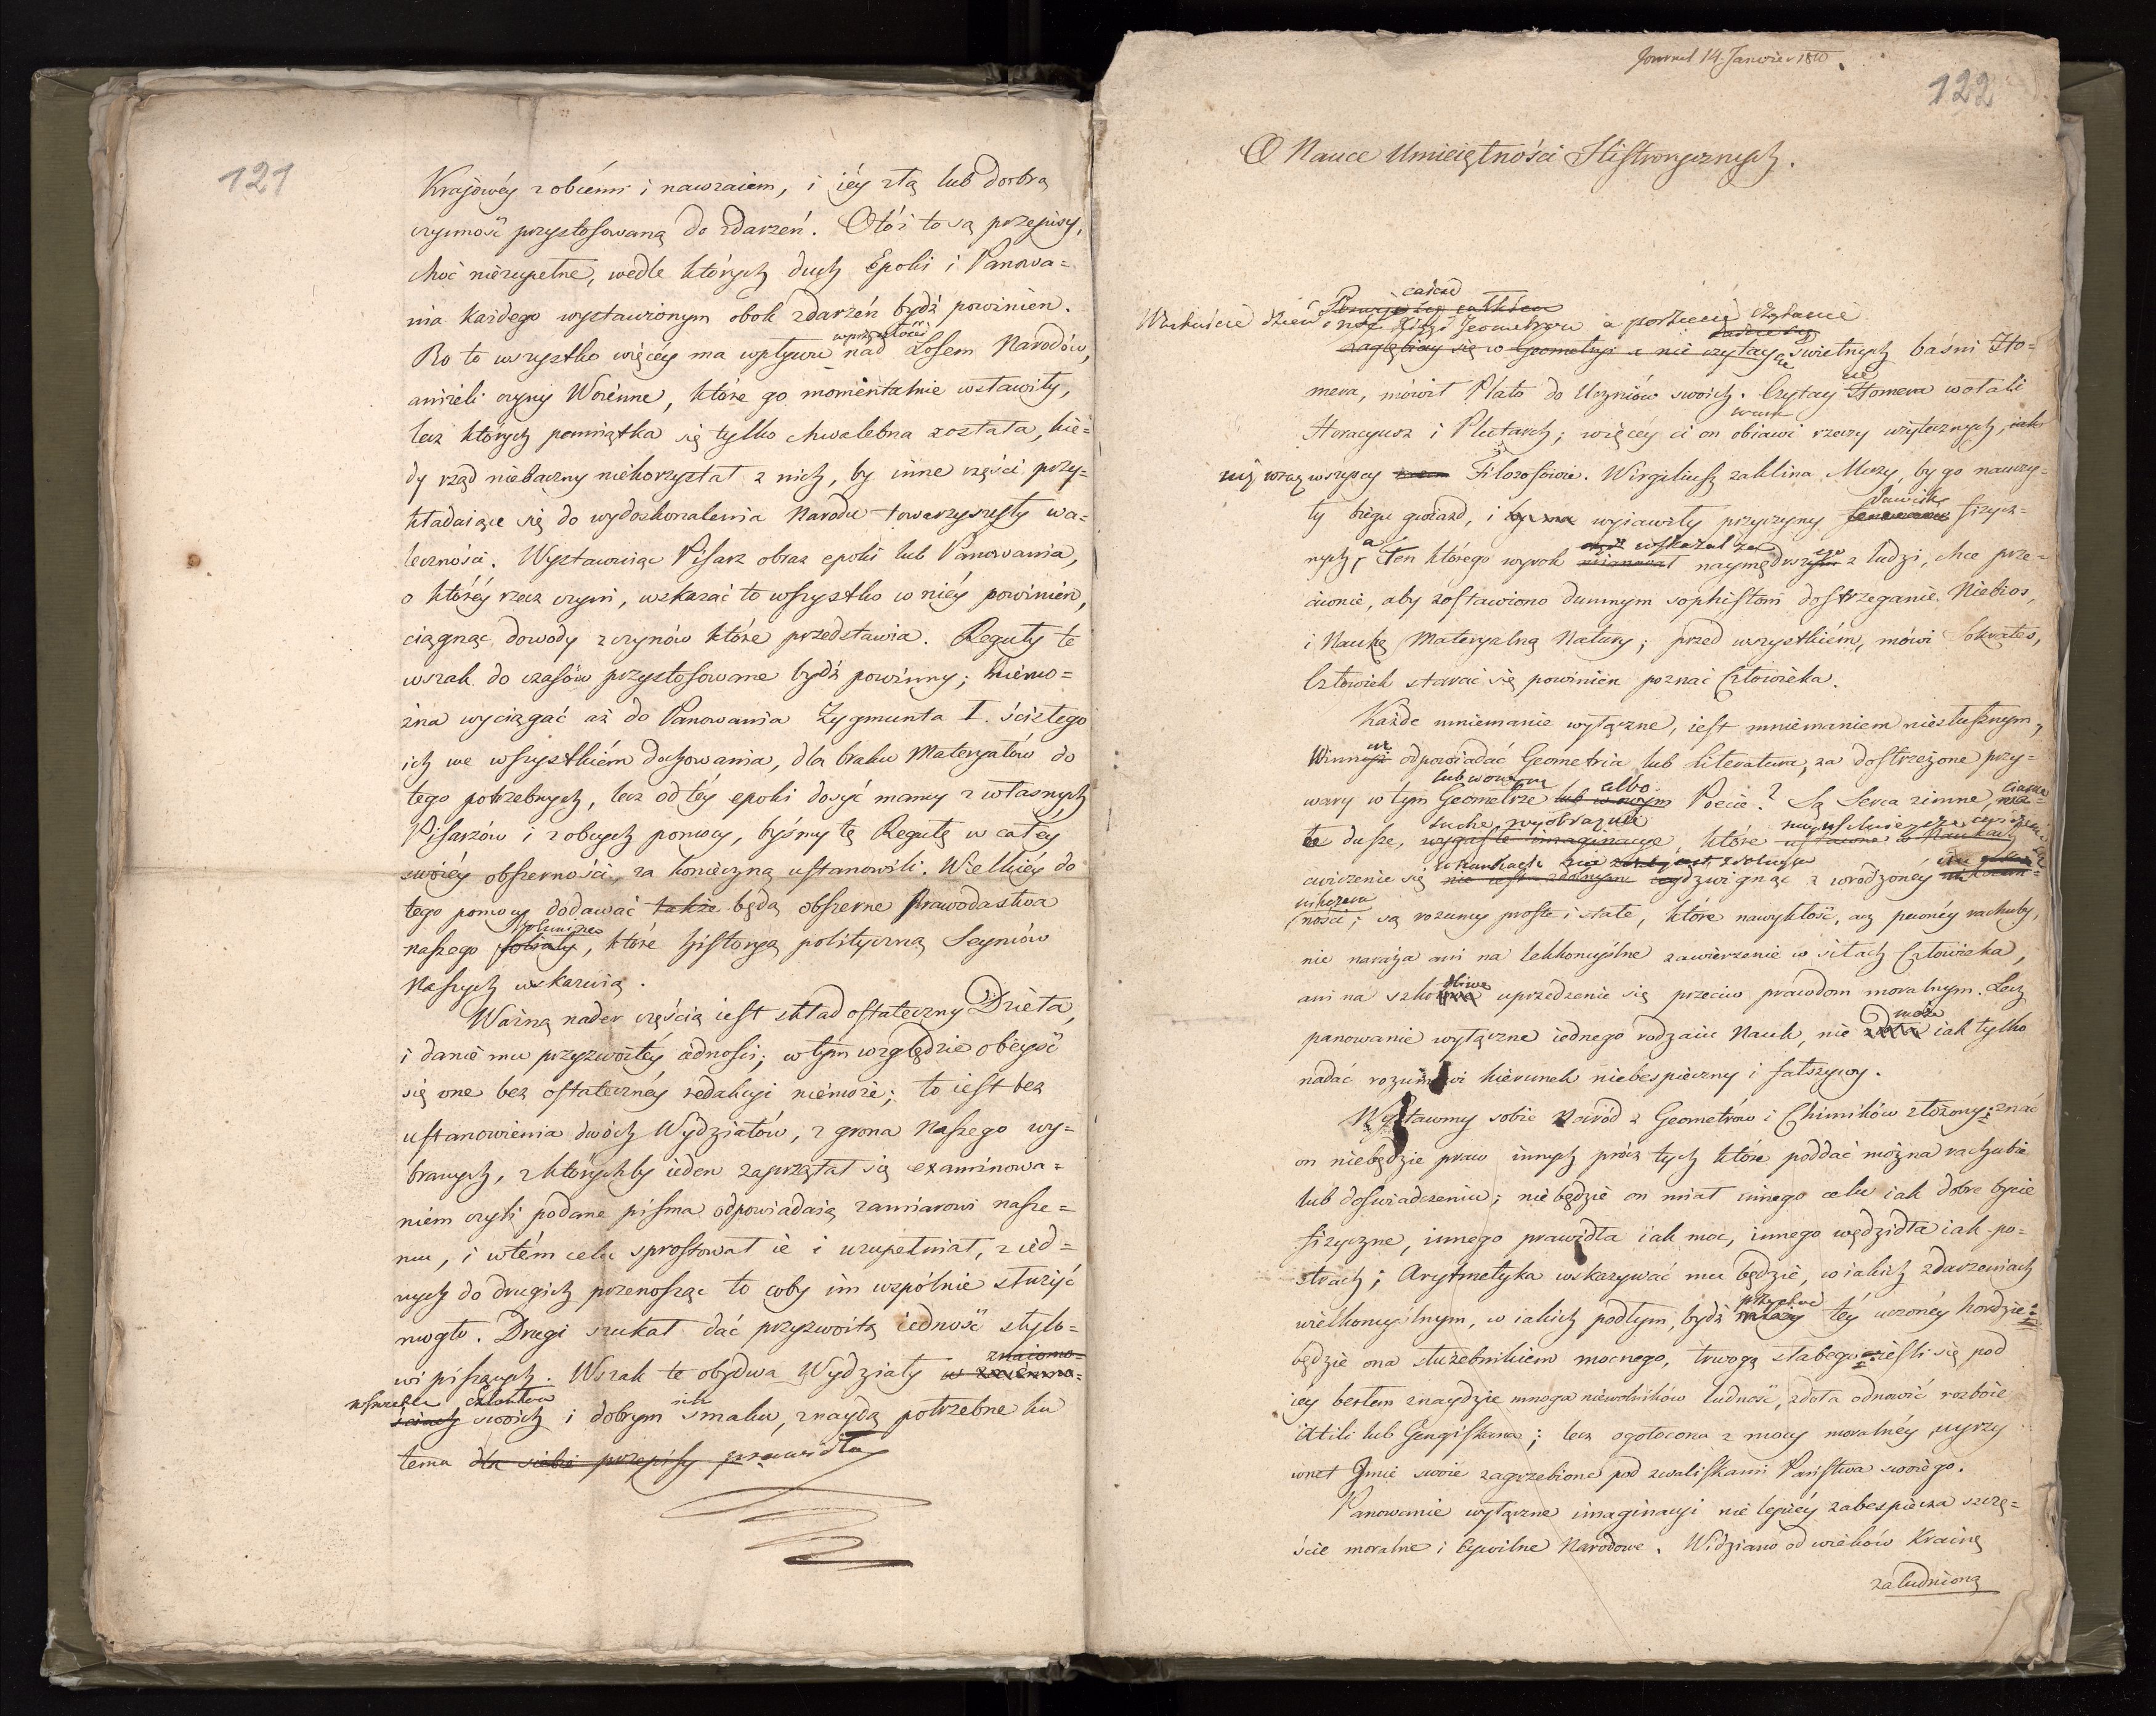 121
Krajowéy z obcémi i nawzaiem, i iéy złą lub dobrą
czynność przystosowaną do zdarzeń. Otóż to są przepisy,
choć niézupełne, wedle których duch Epoki i Panowa=
nia każdego wystawionym obok zdarzéń bydź powinien.
w przyszłości
Bo to wszystko więcéy ma wpływu nad Losem Narodów,
aniżeli czyny Woienne, które go momentalnie wsławiły,
lecz których pamiątka się tylko chwalebna została, kié=
dy rząd niebaczny niékorzystał z nich, by inne części przy=
kładaiące się do wydoskonalenia Narodu towarzyszyły wa=
leczności. Wystawuiąc Pisarz obraz epoki lub Panowania,
o któréy rzecz czyni, wskazać to wszystko w niéy powinién,
ciągnąc dowody z czynów które przedstawia. Reguły te
wszak do czasów przystosowane bydź powinny; niémo=
żna wyciągać aż do Panowania Zygmunta I. ścisłego
ich we wszystkiém dochowania, dla braku Materyałów do
tego potrzebnych, lecz od téy epoki dosyć mamy z własnych
Pisarzów i z obcych pomocy, byśmy tę Regułę w całey
swoiéy obszerności, za konieczną ustanowili. Wielkiéy do
tego pomocy dodawać także będą obszerne Prawodastwa
Volumina
naszego foliały, które historyą polityczną Seymów
Naszych wskazuią.
Ważną nader częścią iest skład ostateczny Dzieła,
i danié mu przyzwoitéy iedności; w tym względzie obeyść
się one bez ostatecznéy redakcyi niémoże; to iest bez
ustanowienia dwóch Wydziałów, z grona Naszego wy=
branych, z którychby ieden zaprzątał się examinowa=
niem czyli podane pisma odpowiadaią zamiarowi nasze=
mu, i w tém celu sprostował ie i uzupełniał, z ied=
nych do drugich przenosząc to coby im wspólnie służyć
mogło. Drugi szukał dać przyzwoitą iedność stylo=
znaiomo=
wi piszących. Wszak te obydwa Wydziały w
ściach swoich i dobrym ich smaku, znaydą potrzebne ku
temu dla siebie przepisy prawidła
Journal 14. Janvier 1810.
122
O Nauce Umieiętności Historycznych.
Geometrów a porzuccie czytanie
Zagłębiay się w Geometryi a nie czytay świetnych baśni Ho=
mera, mówił Plato do Uczniów swoich. Czytay Homera wołali
Horacyusz i Plutarch; więcéy ci on obiawi rzeczy użytecznych, iak
wszyscy Filozofowie. Wirgiliusz zaklina Muzy, by go nauczy=
ły biegu gwiazd, i wyiawiły przyczyny Zjawisk fizycz=
wskazał za
nych, a Ten którego wyrok naymędrszego z ludzi, chce prze=
ciwnie, aby zostawiono dumnym sophistom dostrzeganié Niébios,
i Naukę Materyalną Natury; przed wszystkiém, mówi Sokrates,
Człowiek starać się powinién poznać Człowieka.
Każde mniemanie wyłączne, iest mniémaniem niésłusznym,
Winnyż odpowiadać Geometria lub Literatura, za dostrzeżone przy=
lub w owym albo
wary w tym Geometrze lub w owym Poecie? Są Serca zimne, ciasne
suche wyobraźnie
te dusze, wygasłe imaginacye, które ustawne w Naukach
cwiczenie się nie iest zdolnym wydzwignąć z wrodzonéy nikczem=
ności; są rozumy proste i stałe, które nawykłość, acz pewnéy rachuby,
nie naraża ani na lekkomyślne zawierzenie w siłach Człowieka,
ani na szkodliwe uprzedzenie się przeciw prawdom moralnym. Lecz
może
panowanie wyłączne iednego rodzaiu Nauk, nie zdoła iak tylko
nadać rozumowi kierunek niebespieczny i fałszywy.
Wystawmy sobie Naród z Geometrów i Chimików złożony: znać
on niebędzie praw innych prócz tych które poddać można rachubie
lub doswiadczeniu; niébędzie on miał innego celu iak dobre bycie
fizyczne, innego prawidła iak moc, innego wędzidła iak po=
strach; Arytmetyka wskazywać mu będzie, w iakich zdarzeniach
wielkomyślnym, w iakich podłym, bydź téy uczonéy hordzie:
będzie ona służebnikiem mocnego, trwogą słabego: ieśli się pod
iéy berłem znaydzie mnoga niéwolników ludność, zdoła odnowić rozboie
Attili lub Gengiskana; lecz ogołocona z mocy moralnéy, uyrzy
wnet Jmie swoie zagrzebione pod zwaliskami Państwa swoiégo.
Panowanie wyłączne imaginacyi nié lepiéy zabespiécza szczę=
ście moralne i Cywilne Narodowe. Widziano od wieków Krainę
zaludnioną